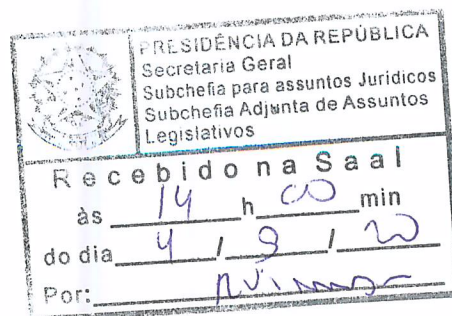 PRESIDÊNCIA DA REPÚBLICA
Secretaria Geral
Subchefia para assuntos Juridicos
Subchefia Adjunta de Assuntos
Legislativos
Recebido na Saal
às 14 h 00 min
do dia 4 / 9 / 20
Por: